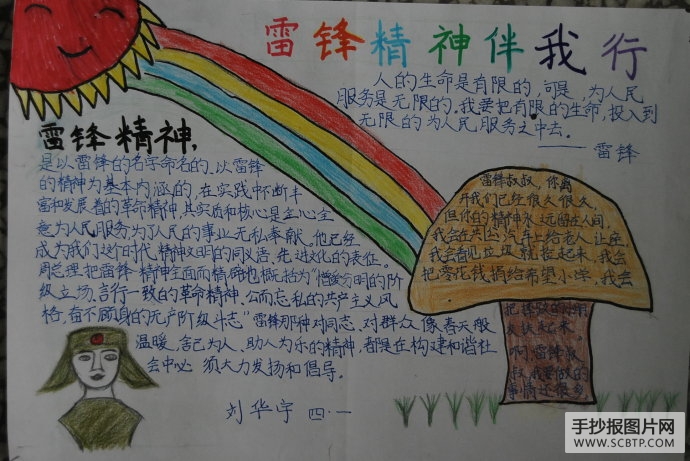 雷锋精神伴我行
人的生命是有限的,可是,为人民
服务是无限的,我要把有限的生命,投入到
无限的为人民服务之中去。
——雷锋
雷锋精神,
是以雷锋的名字命名的、以雷锋
的精神为基本内涵的,在实践中断丰
富和发展着的革命精神,其实质和核心是全心全
意为人民服务为了人民的事业无私奉献。他已经
成为我们这个时代精神文明的同义语、先进文化的表征。
周总理把雷锋精神全面而精 地概括为"憎爱分明的阶
级立场、言行一致的革命精神、公而忘私的共产主义风
格,奋不顾身的无产阶级斗志"雷锋那种对同志、对群众像春天般
温暖,舍己为人、助人为乐的精神,都是在构建和谐社
会中必 须大力发扬和倡导。
刘华宇 四·一
雷锋叔叔,你离
开我们已经很久很久,
但你的精神永远留在人间,
我会在公共汽车上给老人让座,
我会看见垃圾就捡起来,我会
把零花钱捐给希望小学,我会
把摔跤的小朋
友扶起来。
啊,雷锋叔
叔,我要做的
事情还很多
手抄报图片网
WWW.SCBTP.COM